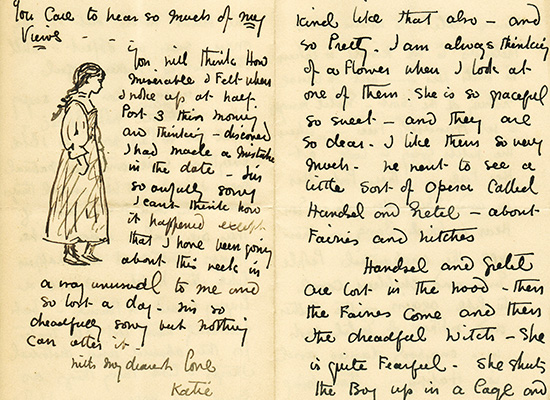 You Care to hear so much of my
Views - - -
You will think How
miserable I Felt when
I woke up at half.
Past 3 this morning
and thinking - discovered
I had made a mistake
in the date - I'm
so awfully sorry
I can't think how
it happened except
that I have been going
about this week in
a way unusual to me and
so lost a day. I'm so
dreadfully sorry but nothing
can alter it -
With my dearest Love
Katie
kind like that also - and
so Pretty. I am always thinking
of a Flower when I look at
one of them. She is so graceful
so sweet - and they are
so dear. I like them so very
much. We went to see a
little Sort of Opera Called
Handsel and Gretel - about
Fairies and witches
Handsel and Gretel
are lost in the wood - then
the Fairies Come and then
the dreadful Witch - She
is quite Fearful. She shuts
the Boy up in a Cage and